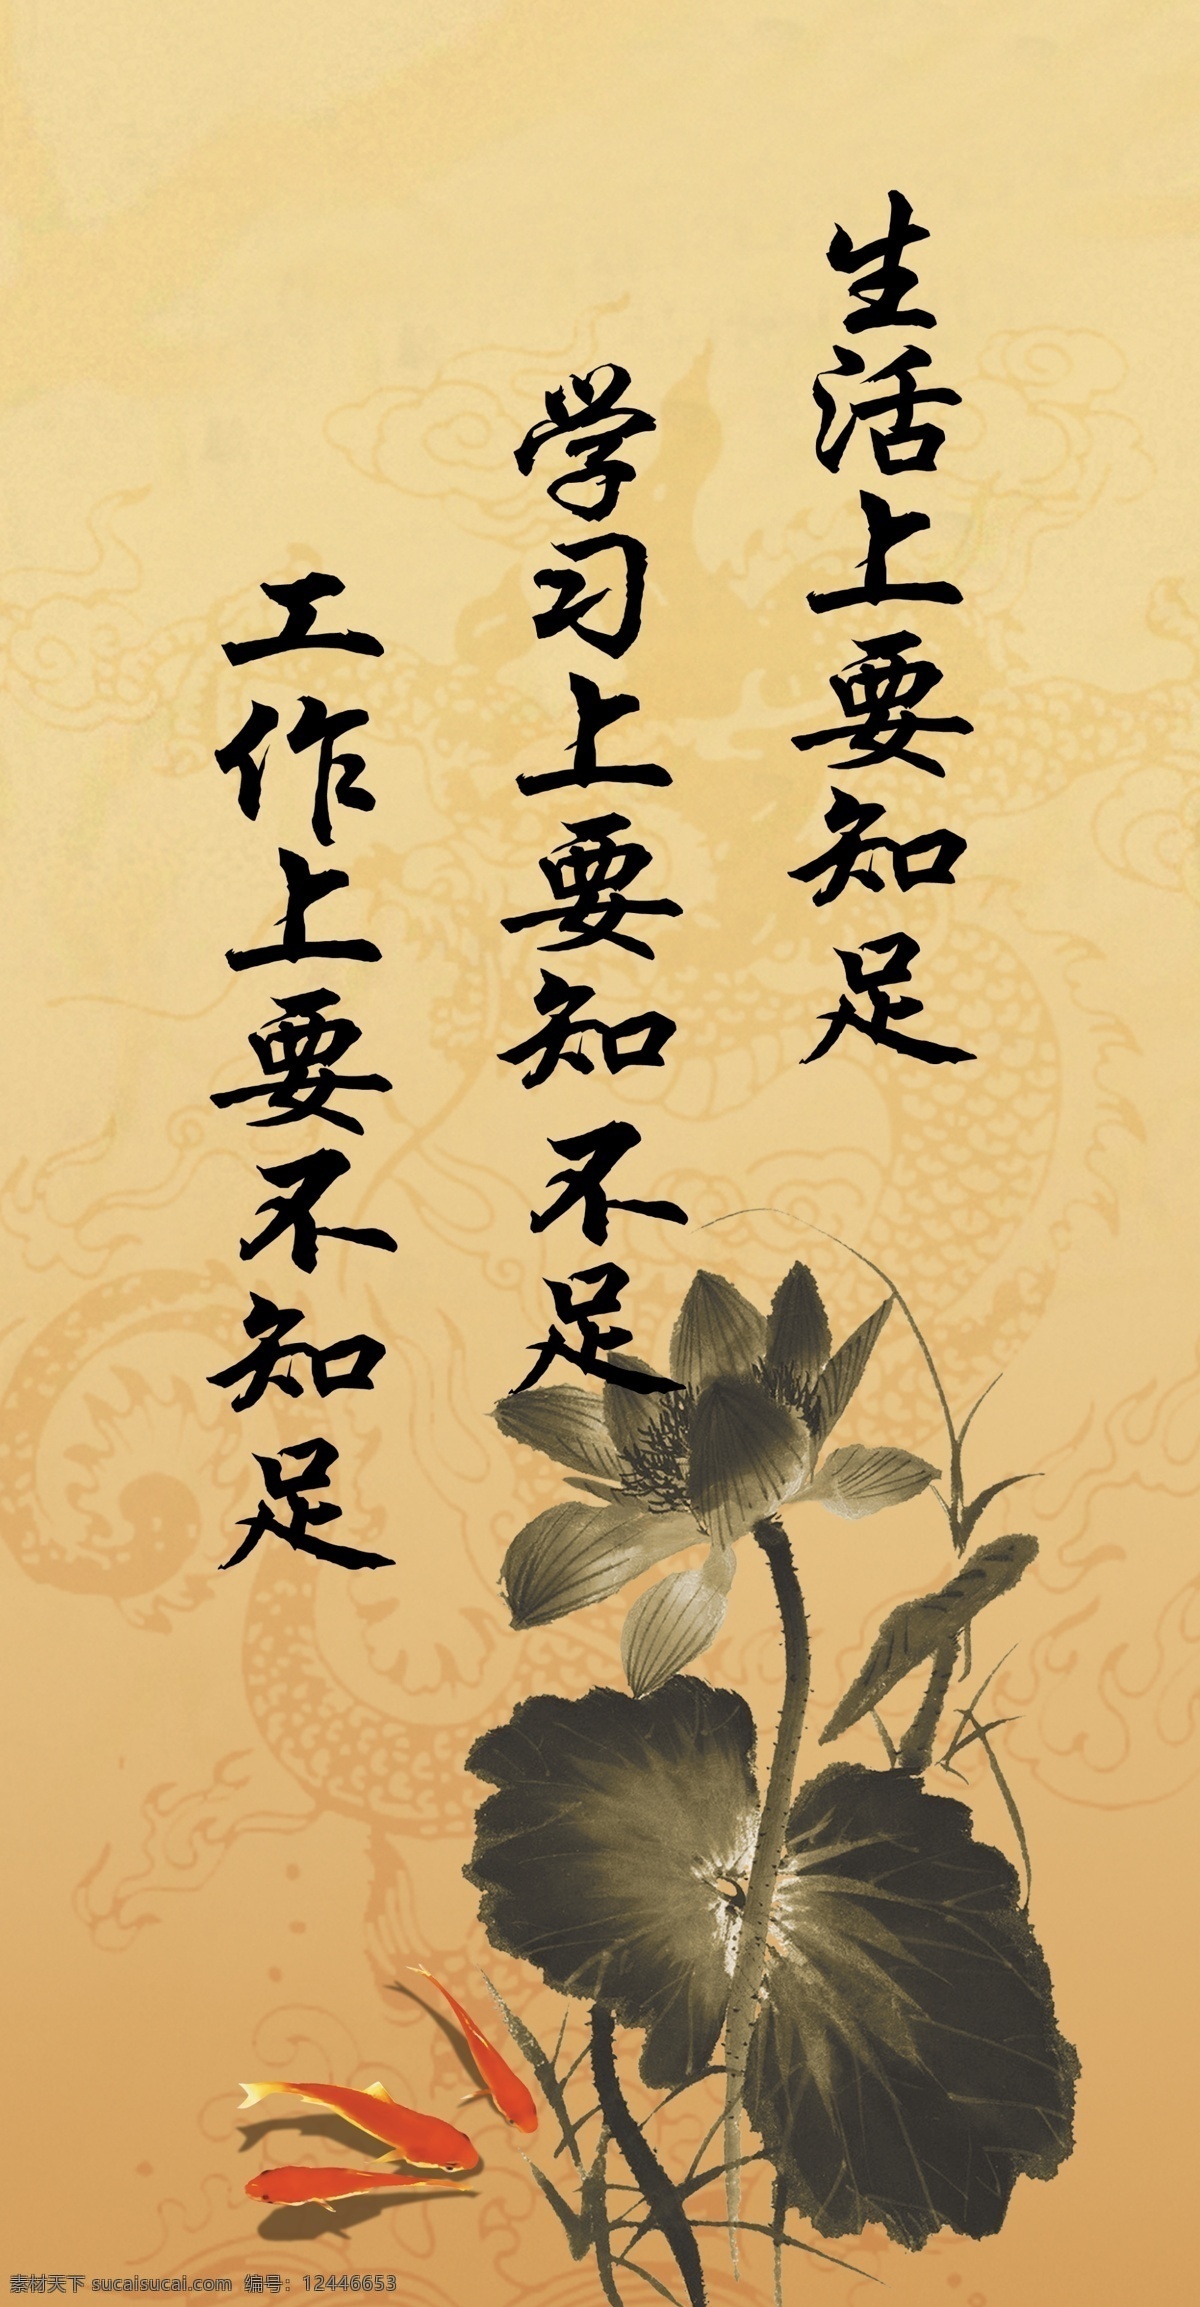 生活上要知足
学习上要知不足
工作上要不知足
素材天下 sucaisucai.com 编号：12446653